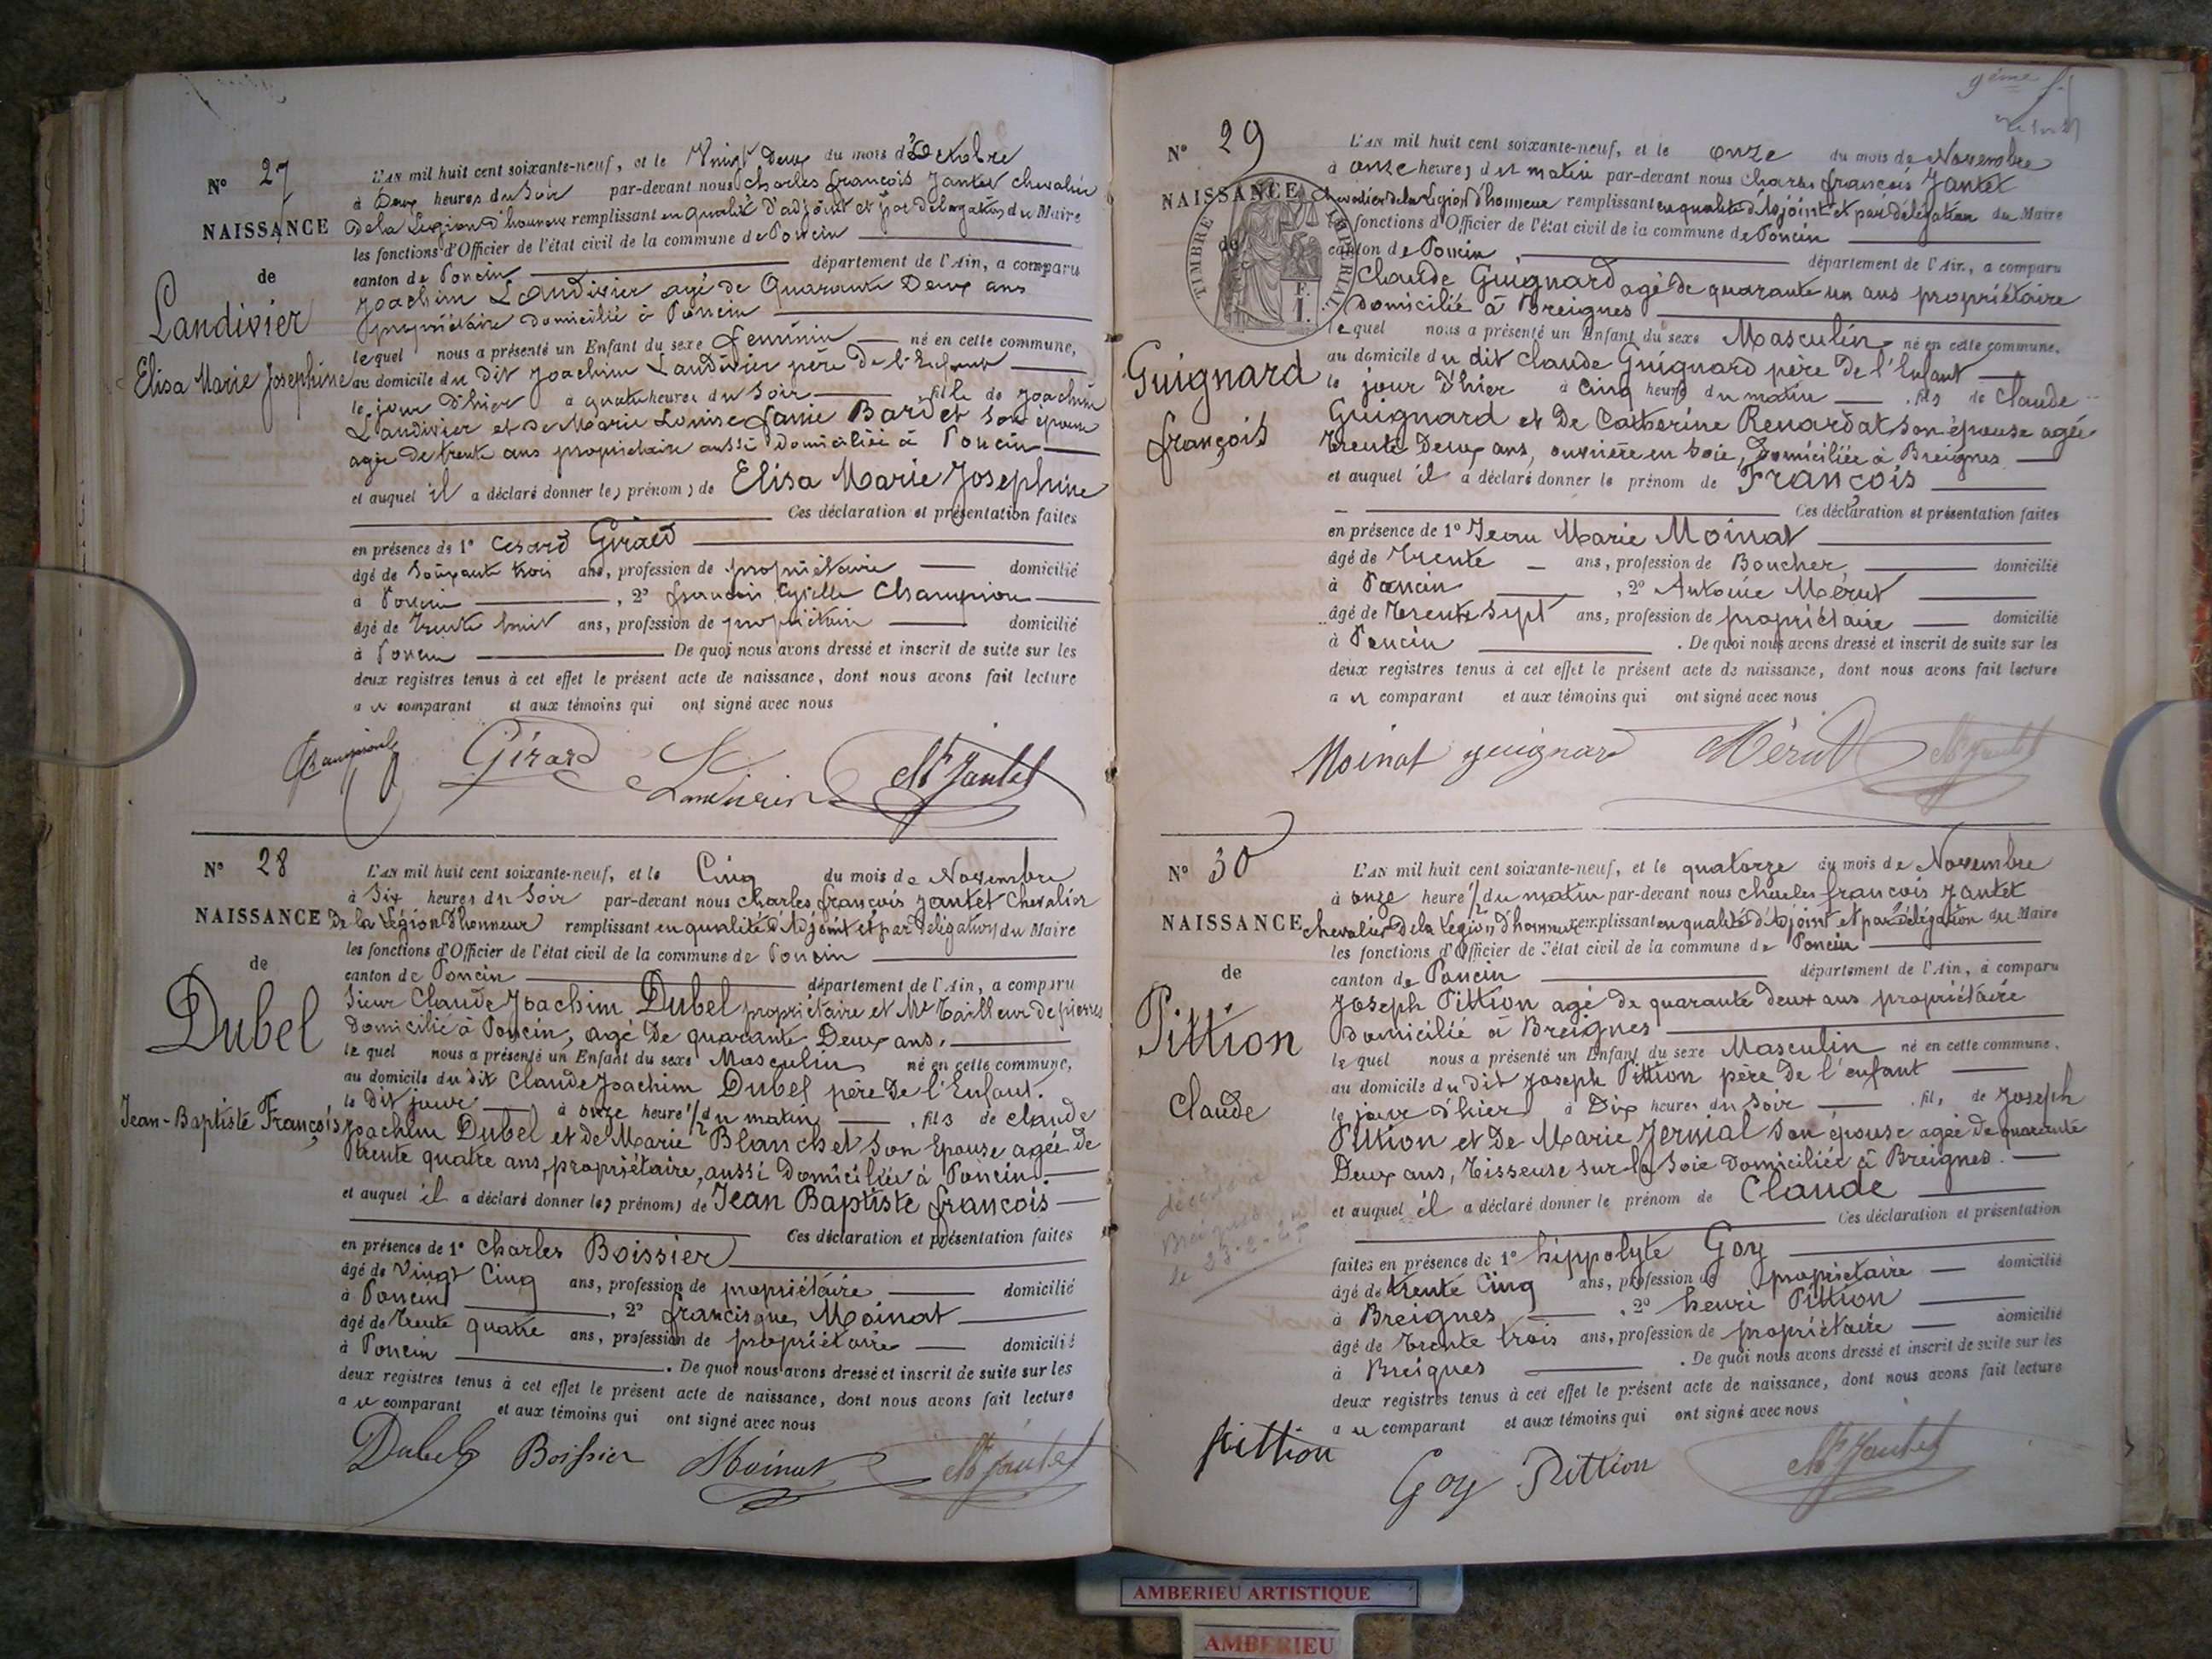 N° 27
NAISSANCE
de
Landivier
Elisa Marie Josephine
L'AN mil huit cent soixante-neuf, et le Vingt Deux du mois d'Octobre
à Deux heures du Soir par-devant nous Charles françois Jantet chevalier
De la Legion D'honneur remplissant en qualité d'adjoint et par Delegation du Maire
les fonctions d'Officier de l'état civil de la commune de Poncin
canton de Poncin département de l'Ain, a comparu
Joachim Landivier agé de Quarante Deux ans
propriétaire domicilié à Poncin
lequel nous a présenté un Enfant du sexe feminin né en cette commune,
au domicile du dit Joachim Landivier père de l'Enfant
le jour d'hier à quatre heures du Soir fille de Joachim
Landivier et de Marie Louise fanie Bardet son épouse
agée de trente ans propriétaire aussi domiciliée à Poncin
et auquel il a déclaré donner les prénoms de Elisa Marie Josephine
Ces déclaration et présentation faites
en présence de 1° Cesard Girard
âgé de soixante trois ans, profession de propriétaire domicilié
à Poncin , 2° françois Cyrille Champion
âgé de trente huit ans, profession de propriétaire domicilié
à Poncin De quoi nous avons dressé et inscrit de suite sur les
deux registres tenus à cet effet le présent acte de naissance, dont nous avons fait lecture
au comparant et aux témoins qui ont signé avec nous
Champion Girard Landivier Jantet
N° 28
NAISSANCE
de
Dubel
Jean-Baptiste François
L'AN mil huit cent soixante-neuf, et le Cinq du mois de Novembre
à Six heures du Soir par-devant nous Charles françois Jantet Chevalier
De la Légion D'honneur remplissant en qualité d'Adjoint et par Delégation du Maire
les fonctions d'Officier de l'état civil de la commune de Poncin
canton de Poncin département de l'Ain, a comparu
Sieur Claude Joachim Dubel propriétaire et Me Tailleur de pierres
Domicilié à Poncin, agé De quarante Deux ans,
lequel nous a présenté un Enfant du sexe Masculin né en cette commune,
au domicile du dit Claude Joachim Dubel père De l'Enfant.
le dit jour à onze heure 1/2 du matin , fils de Claude
Joachim Dubel et de Marie Blanchet Son Epouse agée de
trente quatre ans, propriétaire, aussi Domiciliée à Poncin.
et auquel il a déclaré donner les prénoms de Jean Baptiste françois
Ces déclaration et présentation faites
en présence de 1° Charles Boissier
âgé de Vingt Cinq ans, profession de propriétaire domicilié
à Poncin , 2° francisque Moinat
âgé de trente quatre ans, profession de propriétaire domicilié
à Poncin . De quoi nous avons dressé et inscrit de suite sur les
deux registres tenus à cet effet le présent acte de naissance, dont nous avons fait lecture
au comparant et aux témoins qui ont signé avec nous
Dubel Boissier Moinat Jantet
9ème
N° 29
NAISSANCE
de
TIMBRE IMPERIAL
Guignard
françois
L'AN mil huit cent soixante-neuf, et le onze du mois de Novembre
à onze heures du matin par-devant nous Charles françois Jantet
Chevalier de la Légion D'honneur remplissant en qualité d'Adjoint et par délégation du Maire
les fonctions d'Officier de l'état civil de la commune de Poncin
canton de Poncin , département de l'Ain, a comparu
Claude Guignard agé de quarante un ans propriétaire
domicilié à Breignes
lequel nous a présenté un Enfant du sexe Masculin né en cette commune,
au domicile du dit Claude Guignard père De l'Enfant
le jour d'hier à Cinq heures du matin , fils de Claude
Guignard et De Catherine Renardat son épouse agée
trente Deux ans, ouvrière en Soie, Domiciliée à Breignes
et auquel il a déclaré donner le prénom de François
Ces déclaration et présentation faites
en présence de 1° Jean Marie Moinat
âgé de trente ans, profession de Boucher domicilié
à Poncin , 2° Antoine Mérut
âgé de trente sept ans, profession de propriétaire domicilié
à Poncin . De quoi nous avons dressé et inscrit de suite sur les
deux registres tenus à cet effet le présent acte de naissance, dont nous avons fait lecture
au comparant et aux témoins qui ont signé avec nous
Moinat guignard Mérut Jantet
N° 30
NAISSANCE
de
Pittion
Claude
L'AN mil huit cent soixante-neuf, et le quatorze du mois de Novembre
à onze heure 1/2 du matin par-devant nous Charles françois Jantet
chevalier De la Légion D'honneur remplissant en qualité d'Adjoint et par délégation du Maire
les fonctions d'Officier de l'état civil de la commune de Poncin
canton de Poncin département de l'Ain, a comparu
Joseph Pittion agé de quarante deux ans propriétaire
Domicilié à Breignes
lequel nous a présenté un Enfant du sexe Masculin né en cette commune,
au domicile du dit Joseph Pittion père De l'enfant
le jour d'hier à Dix heures du Soir , fils de Joseph
Pittion et De Marie Jernial son épouse agée De quarante
Deux ans, Tisseuse sur la Soie Domiciliée à Breignes.
et auquel il a déclaré donner le prénom de Claude
Ces déclaration et présentation
décédé à
Breignes
le 23-2-45
faites en présence de 1° hippolyte Goy
âgé de trente Cinq ans, profession de propriétaire domicilié
à Breignes , 2° henri Pittion
âgé de trente trois ans, profession de propriétaire domicilié
à Breignes . De quoi nous avons dressé et inscrit de suite sur les
deux registres tenus à cet effet le présent acte de naissance, dont nous avons fait lecture
au comparant et aux témoins qui ont signé avec nous
pittion Goy Pittion Jantet
AMBERIEU ARTISTIQUE
AMBERIEU